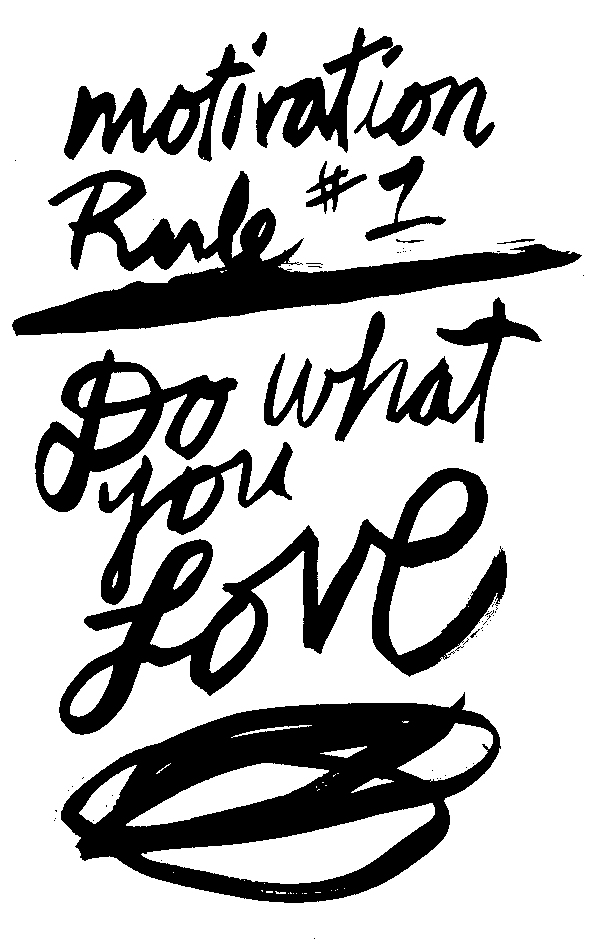 motivation
Rule #1
Do what
you
Love